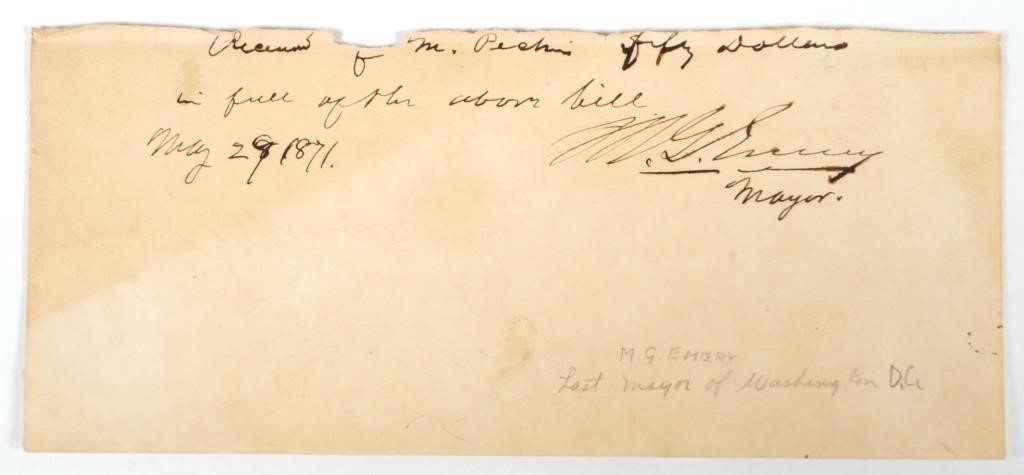 Received of M. Perkins Fifty Dollars
in full of the above bill
May 29 1871.
M. G. Emery
Mayor.
M G. EMERY
Last Mayor of Washington D.C.